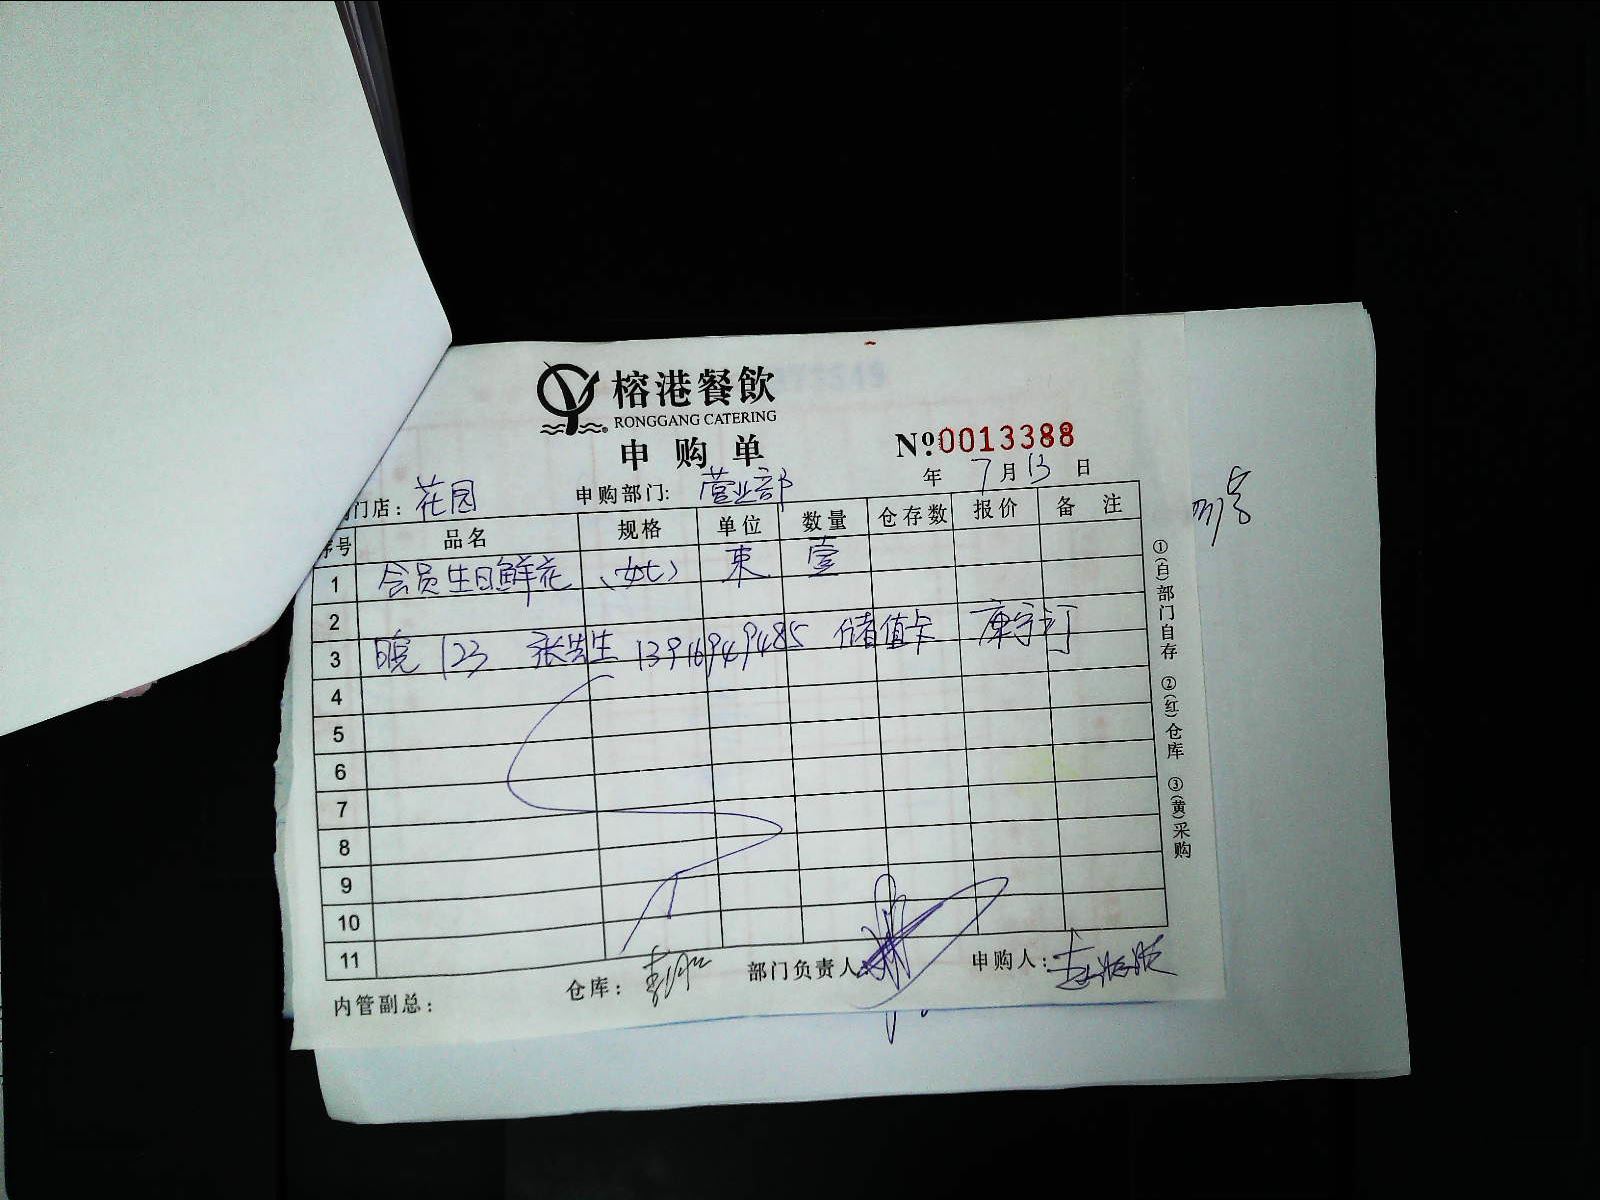 榕港餐飲
RONGGANG CATERING
申购单
Nº.0013388
年 7月13日
门店：花园 申购部门：营业部
序号 品名 规格 单位 数量 仓存数 报价 备注
1 会员生日鲜花 (女士) 束 壹
2
3 晚 123 张先生 13916949485 储值卡 康宁订
4
5
6
7
8
9
10
11
内管副总： 仓库： 部门负责人： 申购人：
①(白)部门自存 ②(红)仓库 ③(黄)采购